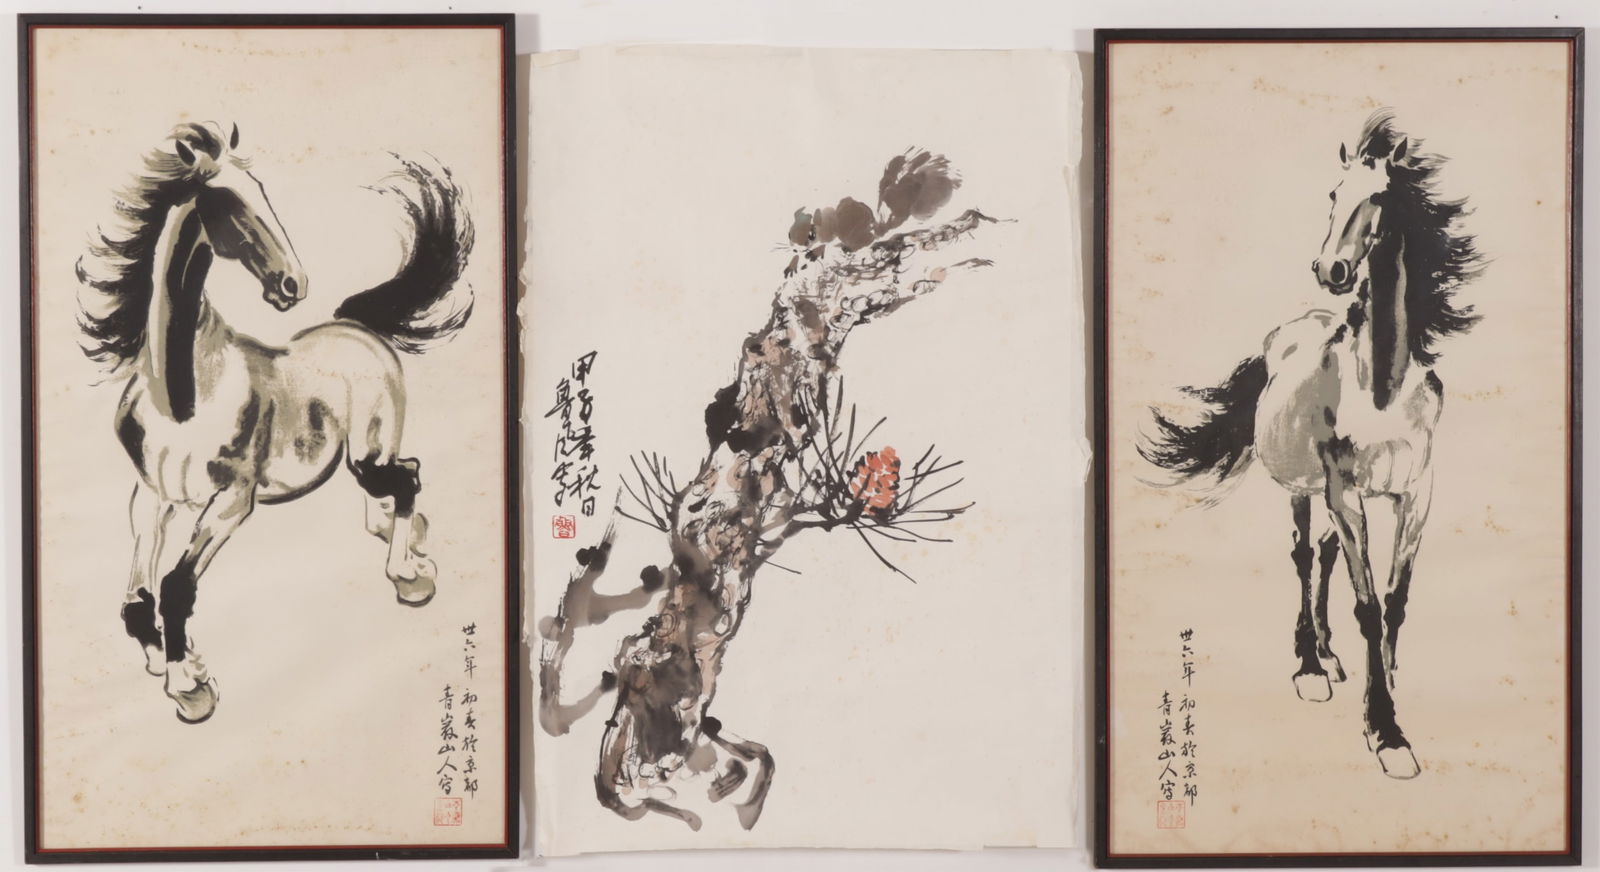 卅六年 初春於京都
青巖山人寫
甲子年秋日
魯風
魯
卅六年 初春於京都
青巖山人寫